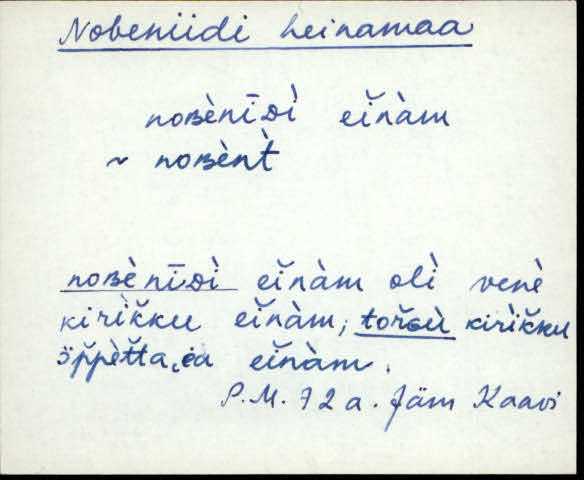 Nobeniidi heinamaa
noʙènīᴅì eǐnàm
~ noʙènt̀
noʙènīᴅì eǐnàm olì venè
kirìk̆ku eǐnàm; torsù kirìk̆ku
ɜ̈p̆pèt̆ta eǐnàm.
P.M. 72 a. Jäm Kaavi